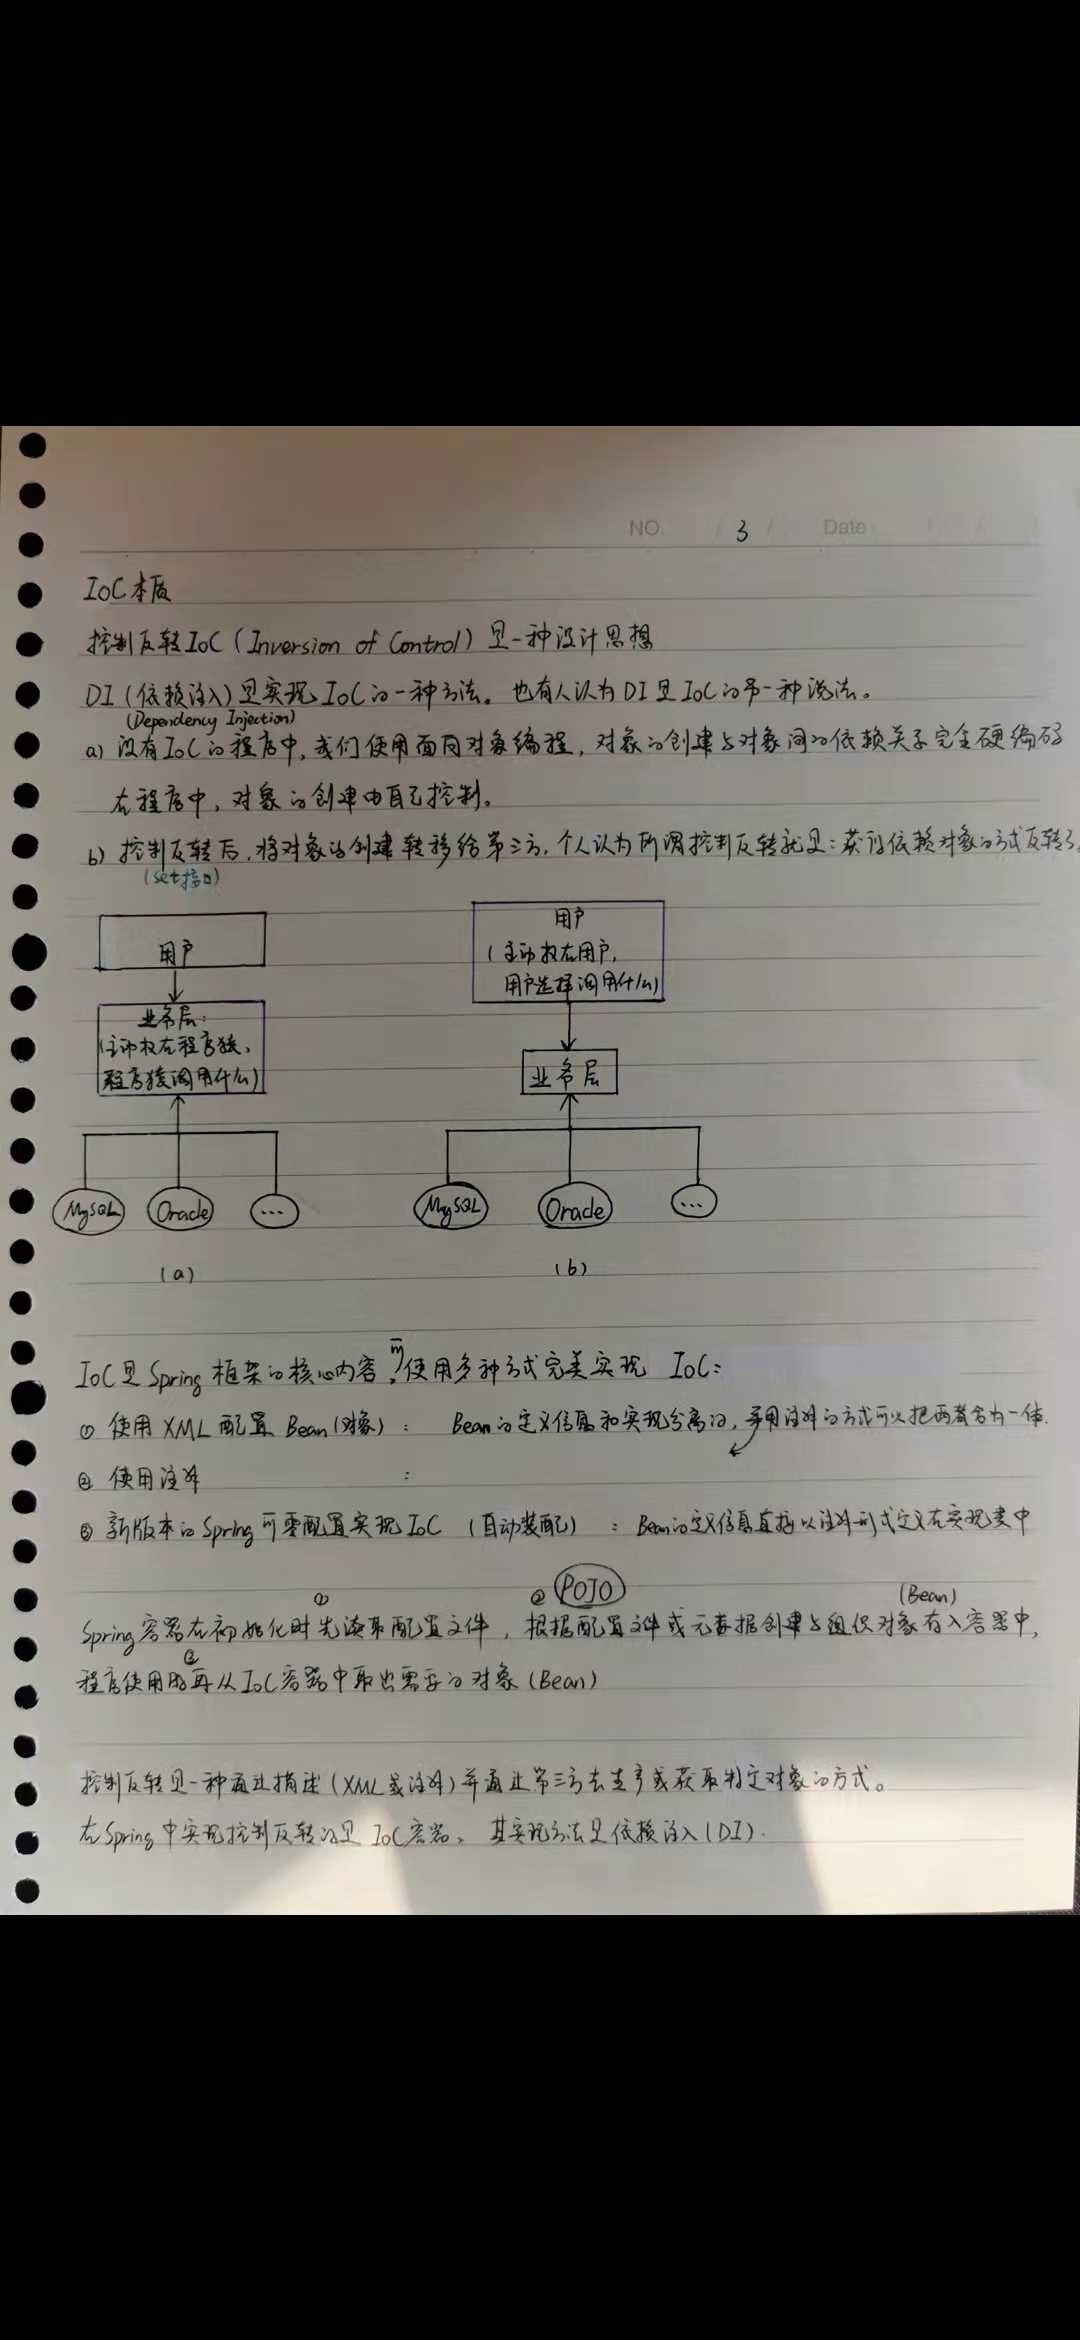 NO. 3 Date
IoC本质
控制反转IoC(Inversion of Control)是一种设计思想
DI(依赖注入)是实现IoC的一种方法。也有人认为DI是IoC的另一种说法。
(Dependency Injection)
a) 没有IoC的程序中,我们使用面向对象编程,对象的创建与对象间的依赖关系完全硬编码
在程序中,对象的创建由自己控制。
b) 控制反转后,将对象的创建转移给第三方,个人认为所谓控制反转就是:获得依赖对象的方式反转了。
(set接口)
用户
业务层:
(主动权在程序猿、
程序猿调用什么)
MySQL Oracle ...
(a)
用户
(主动权在用户,
用户选择调用什么)
业务层
MySQL Oracle ...
(b)
IoC是Spring框架的核心内容,可使用多种方式完美实现 IoC:
① 使用XML配置Bean(对象): Bean的定义信息和实现分离的,采用注解的方式可以把两者合为一体.
② 使用注解 :
③ 新版本的Spring可零配置实现IoC (自动装配) : Bean的定义信息直接以注解形式定义在实现类中
① ② POJO (Bean)
Spring容器在初始化时先读取配置文件,根据配置文件或元数据创建与组织对象存入容器中,
③
程序使用时再从IoC容器中取出需要的对象(Bean)
控制反转是一种通过描述(XML或注解)并通过第三方去生产或获取特定对象的方式。
在Spring中实现控制反转的是IoC容器、其实现方法是依赖注入(DI).